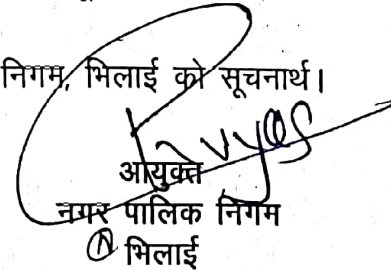 निगम, भिलाई को सूचनार्थ।
आयुक्त
नगर पालिक निगम
भिलाई